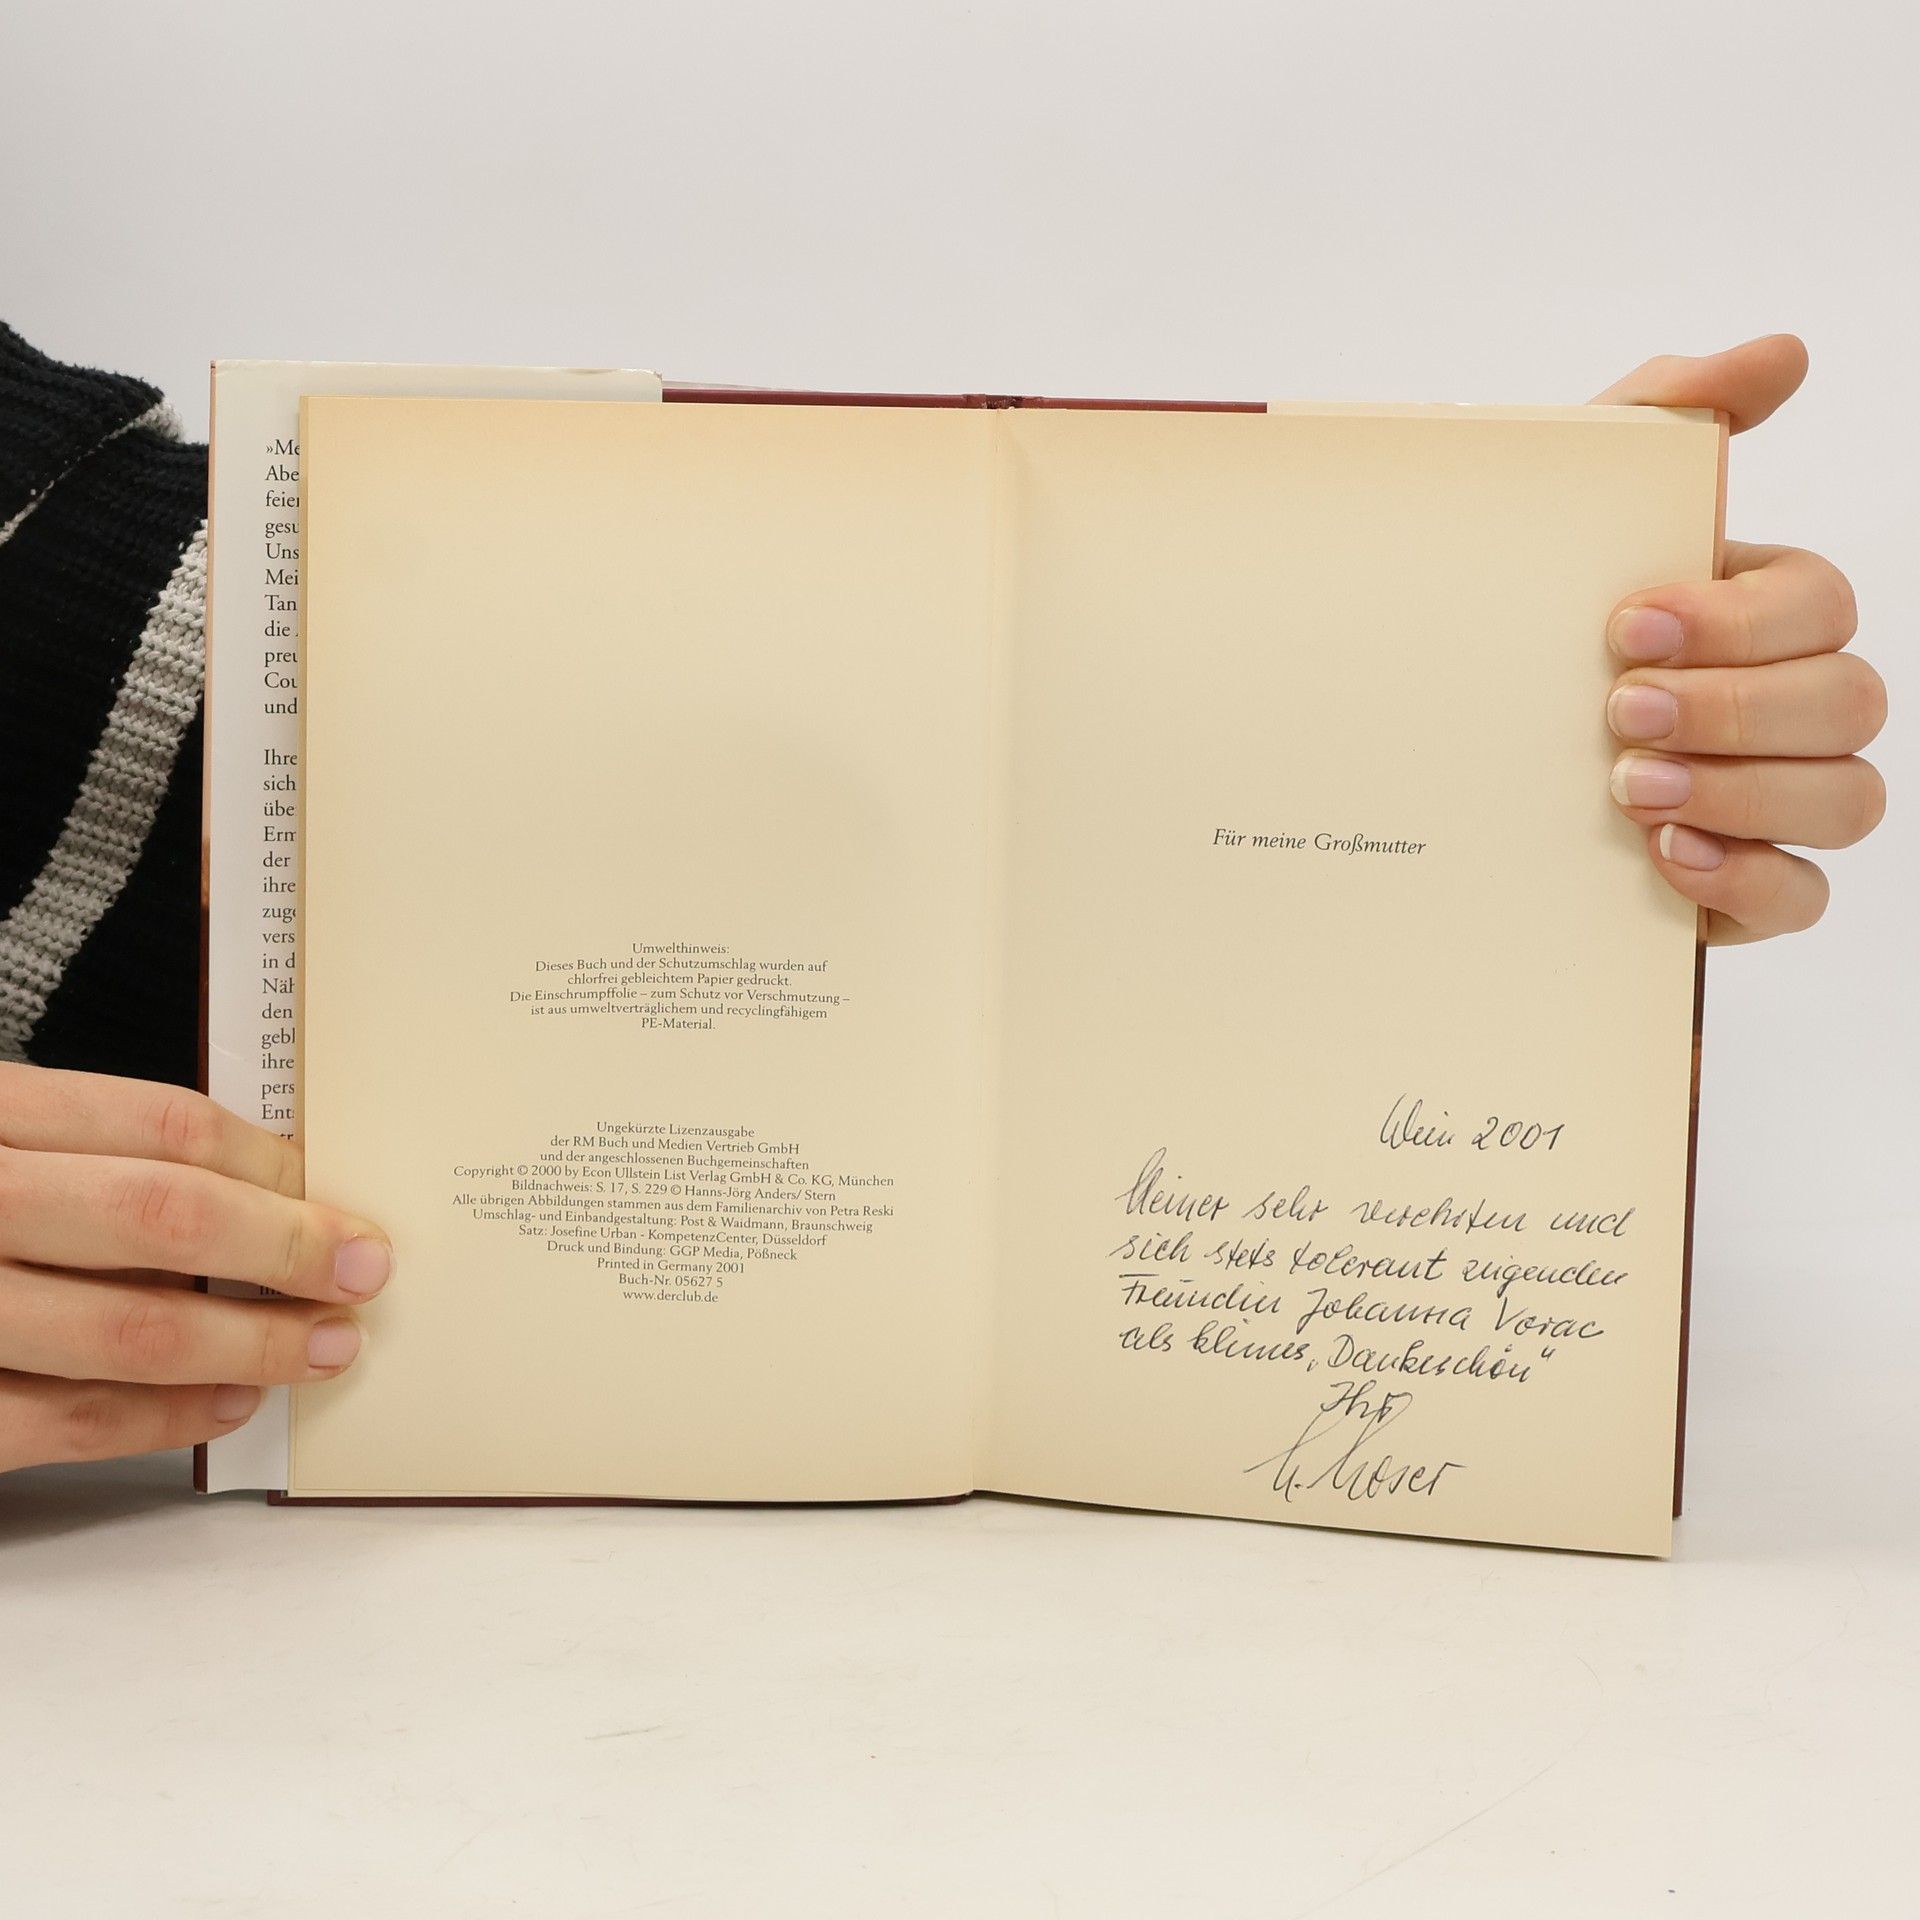 »Me
Abe
feier
gesu
Uns
Mei
Tan
die
preu
Cou
und
Ihre
sich
übe
Erm
der
ihre
zuge
vers
in d
Näh
den
gebl
ihre
pers
Ent
Umwelthinweis:
Dieses Buch und der Schutzumschlag wurden auf
chlorfrei gebleichtem Papier gedruckt.
Die Einschrumpffolie – zum Schutz vor Verschmutzung –
ist aus umweltverträglichem und recyclingfähigem
PE-Material.
Ungekürzte Lizenzausgabe
der RM Buch und Medien Vertrieb GmbH
und der angeschlossenen Buchgemeinschaften
Copyright © 2000 by Econ Ullstein List Verlag GmbH & Co. KG, München
Bildnachweis: S. 17, S. 229 © Hanns-Jörg Anders/ Stern
Alle übrigen Abbildungen stammen aus dem Familienarchiv von Petra Reski
Umschlag- und Einbandgestaltung: Post & Waidmann, Braunschweig
Satz: Josefine Urban - KompetenzCenter, Düsseldorf
Druck und Bindung: GGP Media, Pößneck
Printed in Germany 2001
Buch-Nr. 05627 5
www.derclub.de
Für meine Großmutter
Wein 2001
Meiner sehr verehrten und
sich stets tolerant zeigenden
Freundin Johanna Vorac
als kleines „Dankeschön"
Ihr
Moser